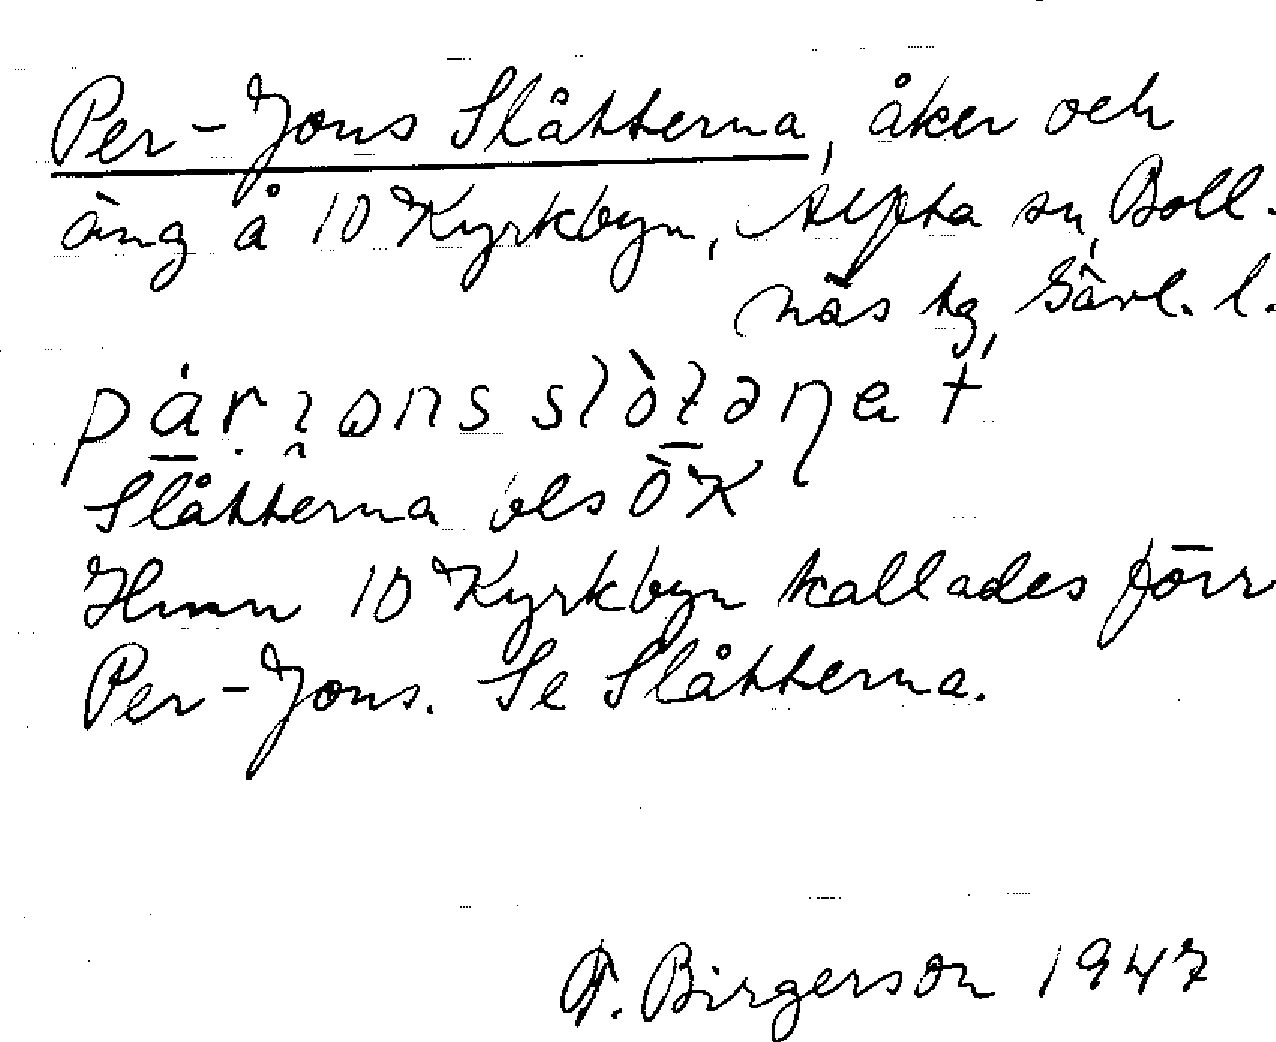 Per-Jons Slåtterna, åker och
äng å 10 Kyrkbyn, Alfta sn, Boll-
näs tg, Gävl. l.
Slåtterna ols ÖK
Hmn 10 Kyrkbyn kallades förr
Per-Jons. Se Slåtterna.
F. Birgerson 1947